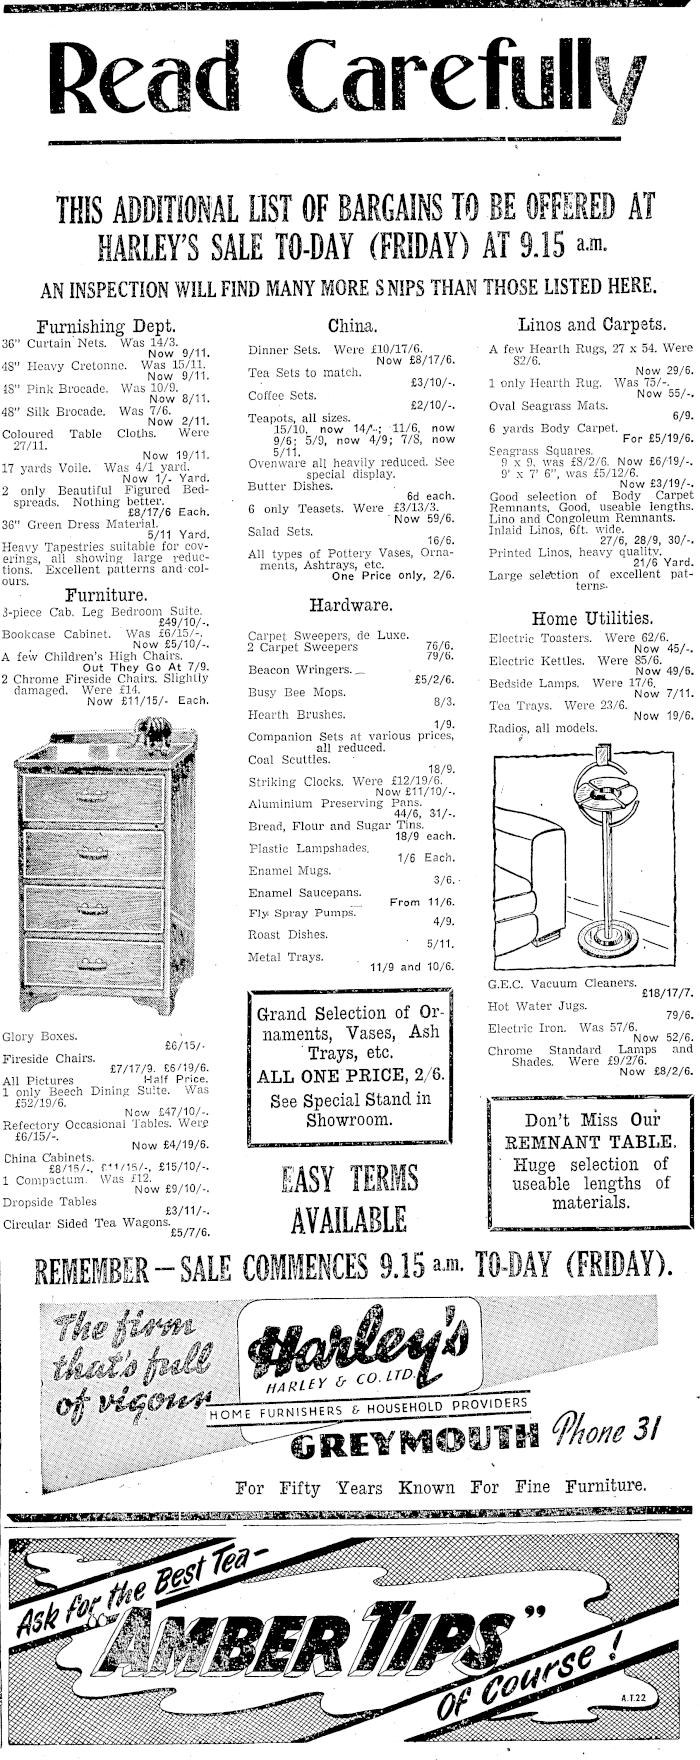 Read Carefully
THIS ADDITIONAL LIST OF BARGAINS TO BE OFFERED AT
HARLEY'S SALE TO-DAY (FRIDAY) AT 9.15 a.m.
AN INSPECTION WILL FIND MANY MORE SNIPS THAN THOSE LISTED HERE.
Furnishing Dept.
36" Curtain Nets. Was 14/3.
Now 9/11.
48" Heavy Cretonne. Was 15/11.
Now 9/11.
48" Pink Brocade. Was 10/9.
Now 8/11.
48" Silk Brocade. Was 7/6.
Now 2/11.
Coloured Table Cloths. Were
27/11.
Now 19/11.
17 yards Voile. Was 4/1 yard.
Now 1/- Yard.
2 only Beautiful Figured Bed-
spreads. Nothing better.
£8/17/6 Each.
36" Green Dress Material.
5/11 Yard.
Heavy Tapestries suitable for cov-
erings, all showing large reduc-
tions. Excellent patterns and col-
ours.
Furniture.
3-piece Cab. Leg Bedroom Suite.
£49/10/-.
Bookcase Cabinet. Was £6/15/-.
Now £5/10/-.
A few Children's High Chairs.
Out They Go At 7/9.
2 Chrome Fireside Chairs. Slightly
damaged. Were £14.
Now £11/15/- Each.
Glory Boxes.
£6/15/-
Fireside Chairs.
£7/17/9. £6/19/6.
All Pictures Half Price.
1 only Beech Dining Suite. Was
£52/19/6.
Now £47/10/-.
Refectory Occasional Tables. Were
£6/15/-.
Now £4/19/6.
China Cabinets.
£8/15/-, £11/15/-, £15/10/-.
1 Compactum. Was £12.
Now £9/10/-.
Dropside Tables
£3/11/-.
Circular Sided Tea Wagons.
£5/7/6.
China.
Dinner Sets. Were £10/17/6.
Now £8/17/6.
Tea Sets to match.
£3/10/-.
Coffee Sets.
£2/10/-.
Teapots, all sizes.
15/10, now 14/-; 11/6, now
9/6; 5/9, now 4/9; 7/8, now
5/11.
Ovenware all heavily reduced. See
special display.
Butter Dishes.
6d each.
6 only Teasets. Were £3/13/3.
Now 59/6.
Salad Sets.
16/6.
All types of Pottery Vases, Orna-
ments, Ashtrays, etc.
One Price only, 2/6.
Hardware.
Carpet Sweepers, de Luxe.
76/6.
2 Carpet Sweepers
79/6.
Beacon Wringers.
£5/2/6.
Busy Bee Mops.
8/3.
Hearth Brushes.
1/9.
Companion Sets at various prices,
all reduced.
Coal Scuttles.
18/9.
Striking Clocks. Were £12/19/6.
Now £11/10/-.
Aluminium Preserving Pans.
44/6, 31/-.
Bread, Flour and Sugar Tins.
18/9 each.
Plastic Lampshades.
1/6 Each.
Enamel Mugs.
3/6.
Enamel Saucepans.
From 11/6.
Fly Spray Pumps.
4/9.
Roast Dishes.
5/11.
Metal Trays.
11/9 and 10/6.
Grand Selection of Or-
naments, Vases, Ash
Trays, etc.
ALL ONE PRICE, 2/6.
See Special Stand in
Showroom.
EASY TERMS
AVAILABLE
Linos and Carpets.
A few Hearth Rugs, 27 x 54. Were
82/6.
Now 29/6.
1 only Hearth Rug. Was 75/-.
Now 55/-.
Oval Seagrass Mats.
6/9.
6 yards Body Carpet.
For £5/19/6.
Seagrass Squares.
9 x 9, was £8/2/6. Now £6/19/-.
9' x 7' 6", was £5/12/6.
Now £3/19/-.
Good selection of Body Carpet
Remnants, Good, useable lengths.
Lino and Congoleum Remnants.
Inlaid Linos, 6ft. wide.
27/6, 28/9, 30/-.
Printed Linos, heavy quality.
21/6 Yard.
Large selection of excellent pat-
terns.
Home Utilities.
Electric Toasters. Were 62/6.
Now 45/-.
Electric Kettles. Were 85/6.
Now 49/6.
Bedside Lamps. Were 17/6.
Now 7/11.
Tea Trays. Were 23/6.
Now 19/6.
Radios, all models.
G.E.C. Vacuum Cleaners.
£18/17/7.
Hot Water Jugs.
79/6.
Electric Iron. Was 57/6.
Now 52/6.
Chrome Standard Lamps and
Shades. Were £9/2/6.
Now £8/2/6.
Don't Miss Our
REMNANT TABLE.
Huge selection of
useable lengths of
materials.
REMEMBER — SALE COMMENCES 9.15 a.m. TO-DAY (FRIDAY).
The firm
that's full
of vigour
Harley's
HARLEY & CO. LTD.
HOME FURNISHERS & HOUSEHOLD PROVIDERS
GREYMOUTH Phone 31
For Fifty Years Known For Fine Furniture.
Ask for the Best Tea-
"AMBER TIPS"
Of Course!
A.T.22